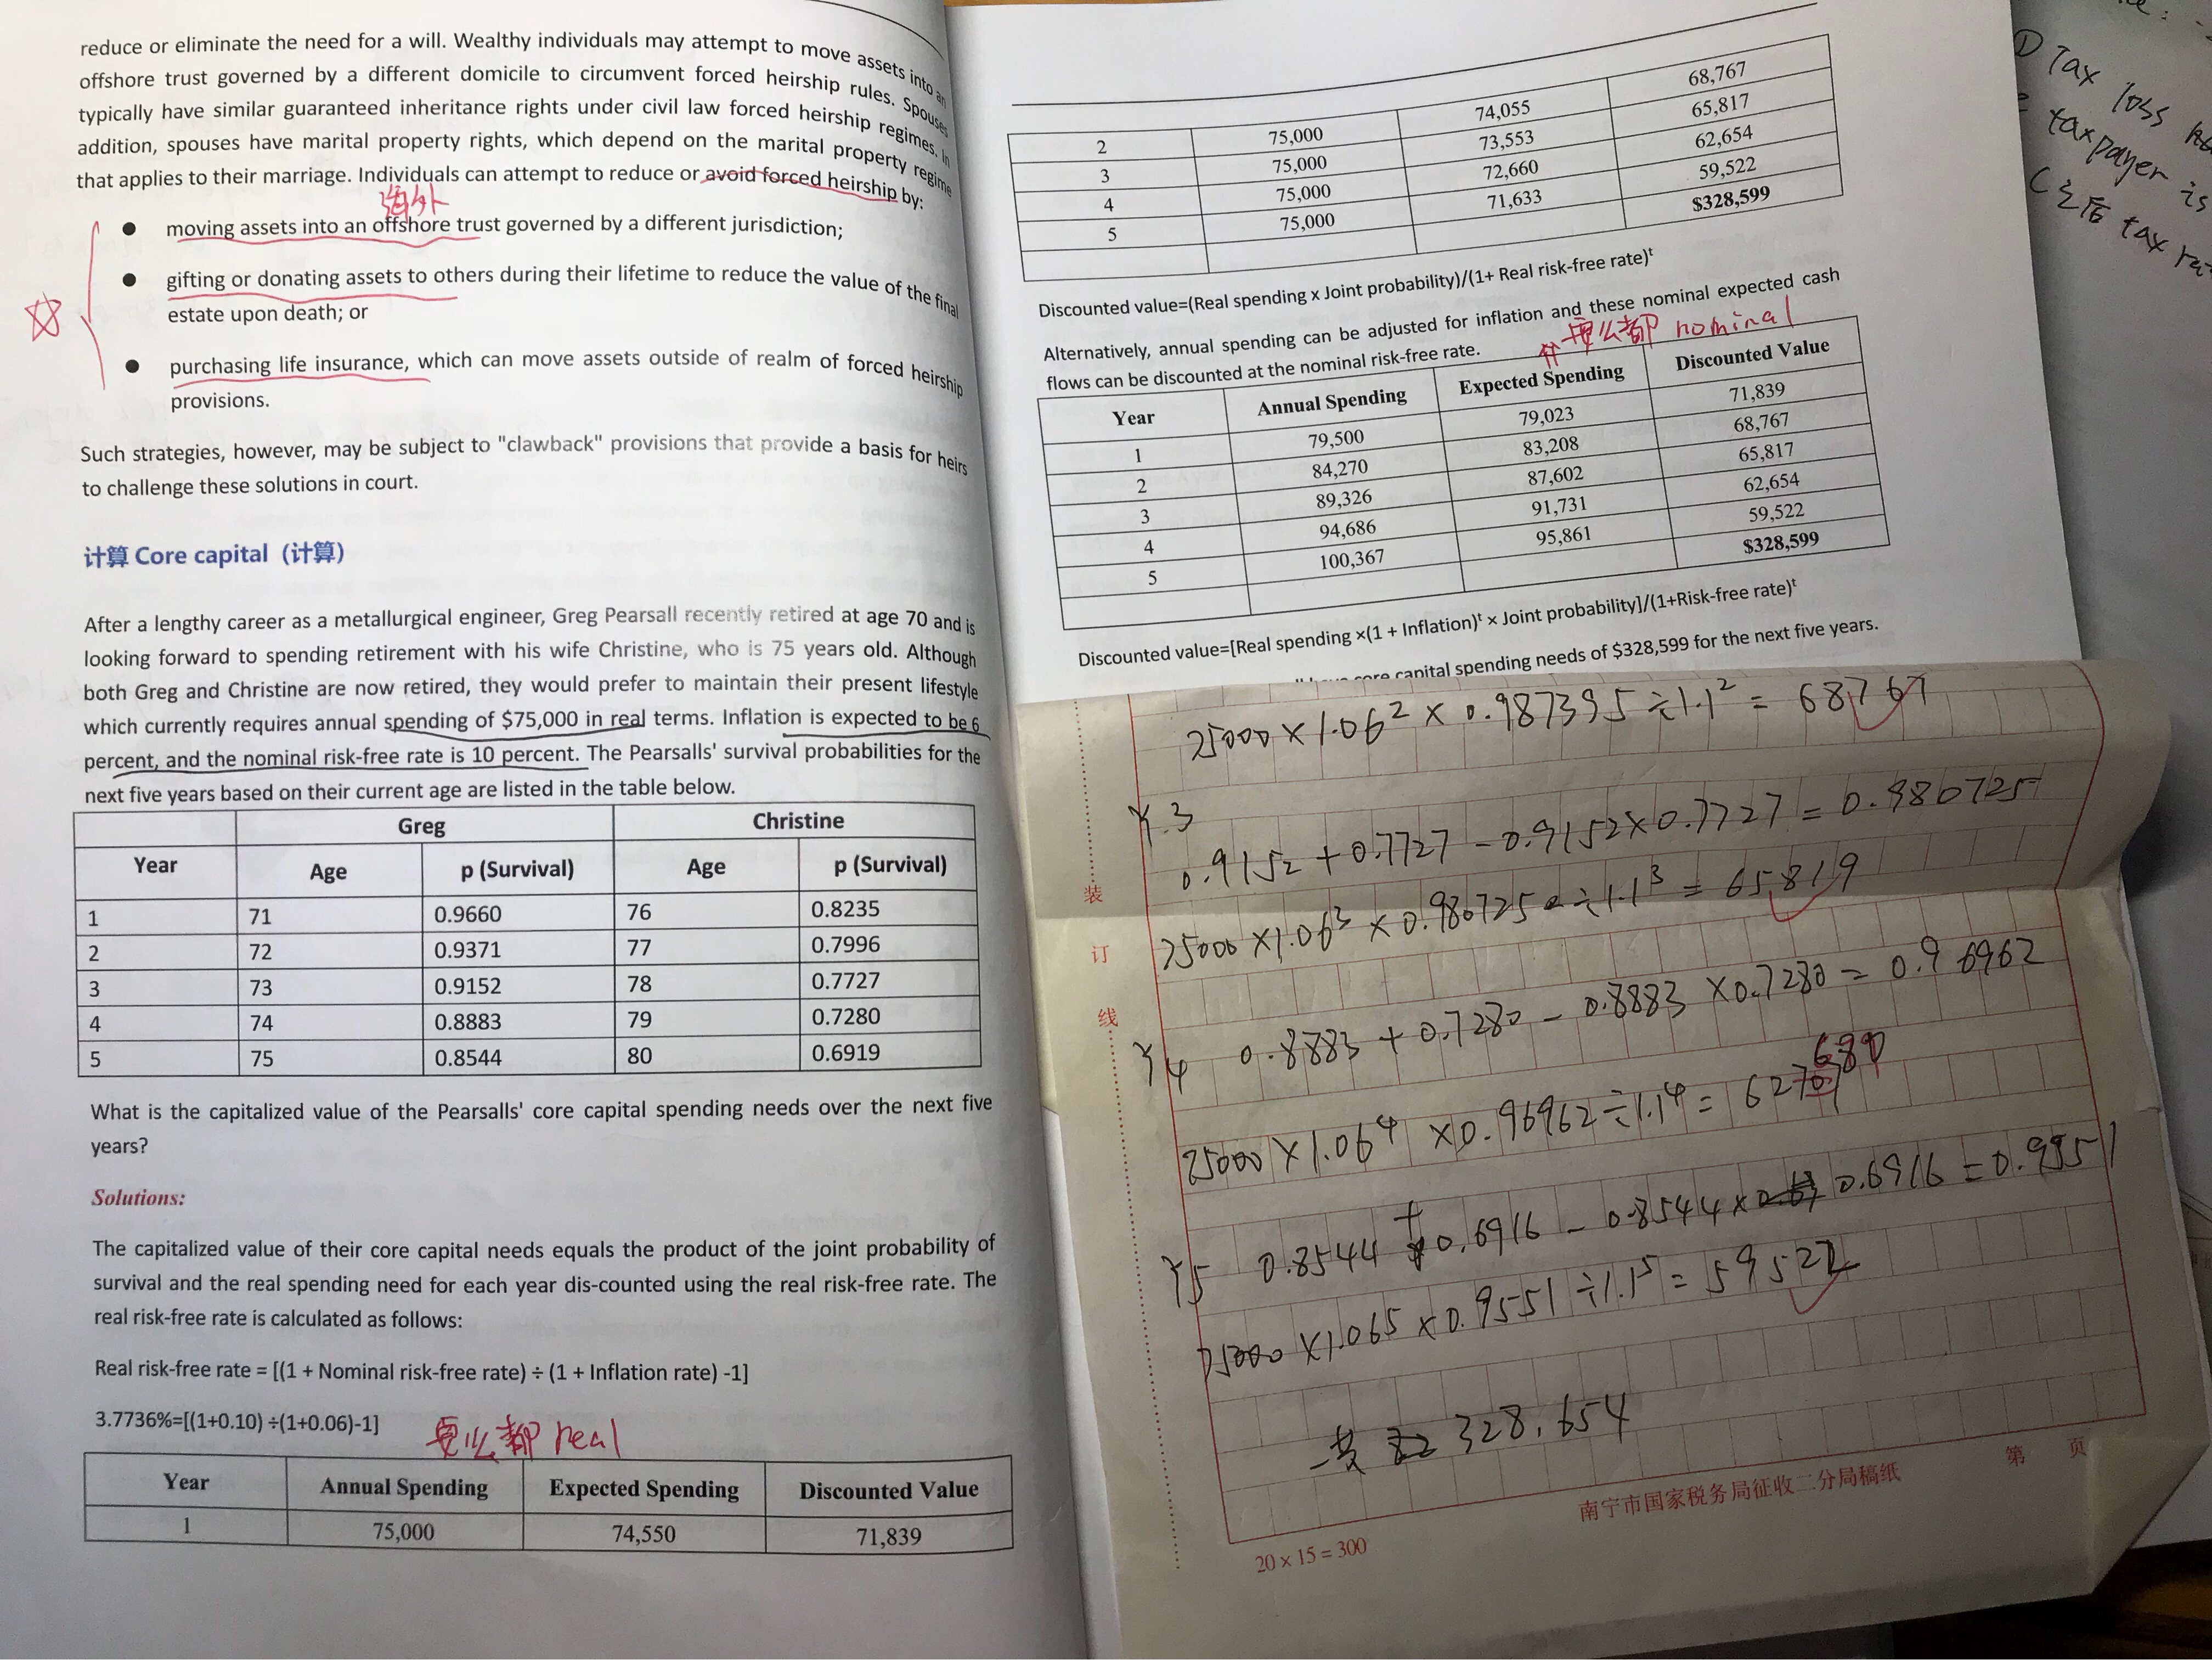 reduce or eliminate the need for a will. Wealthy individuals may attempt to move assets into an
offshore trust governed by a different domicile to circumvent forced heirship rules. Spouses
typically have similar guaranteed inheritance rights under civil law forced heirship regimes. In
addition, spouses have marital property rights, which depend on the marital property regime
that applies to their marriage. Individuals can attempt to reduce or avoid forced heirship by:
海外
● moving assets into an offshore trust governed by a different jurisdiction;
● gifting or donating assets to others during their lifetime to reduce the value of the final
estate upon death; or
● purchasing life insurance, which can move assets outside of realm of forced heirship
provisions.
Such strategies, however, may be subject to "clawback" provisions that provide a basis for heirs
to challenge these solutions in court.
计算 Core capital (计算)
After a lengthy career as a metallurgical engineer, Greg Pearsall recently retired at age 70 and is
looking forward to spending retirement with his wife Christine, who is 75 years old. Although
both Greg and Christine are now retired, they would prefer to maintain their present lifestyle
which currently requires annual spending of $75,000 in real terms. Inflation is expected to be 6
percent, and the nominal risk-free rate is 10 percent. The Pearsalls' survival probabilities for the
next five years based on their current age are listed in the table below.
Greg Christine
Year Age p (Survival) Age p (Survival)
1 71 0.9660 76 0.8235
2 72 0.9371 77 0.7996
3 73 0.9152 78 0.7727
4 74 0.8883 79 0.7280
5 75 0.8544 80 0.6919
What is the capitalized value of the Pearsalls' core capital spending needs over the next five
years?
Solutions:
The capitalized value of their core capital needs equals the product of the joint probability of
survival and the real spending need for each year dis-counted using the real risk-free rate. The
real risk-free rate is calculated as follows:
Real risk-free rate = [(1 + Nominal risk-free rate) ÷ (1 + Inflation rate) -1]
3.7736%=[(1+0.10) ÷(1+0.06)-1]
要么都 real
Year Annual Spending Expected Spending Discounted Value
1 75,000 74,550 71,839
2 75,000 74,055 68,767
3 75,000 73,553 65,817
4 75,000 72,660 62,654
5 75,000 71,633 59,522
$328,599
Discounted value=(Real spending x Joint probability)/(1+ Real risk-free rate)ᵗ
Alternatively, annual spending can be adjusted for inflation and these nominal expected cash
flows can be discounted at the nominal risk-free rate.
要么都 nominal
Year Annual Spending Expected Spending Discounted Value
1 79,500 79,023 71,839
2 84,270 83,208 68,767
3 89,326 87,602 65,817
4 94,686 91,731 62,654
5 100,367 95,861 59,522
$328,599
Discounted value=[Real spending ×(1 + Inflation)ᵗ × Joint probability]/(1+Risk-free rate)ᵗ
core capital spending needs of $328,599 for the next five years.
75000 × 1.06² × 0.987395 ÷ 1.1² = 68767
Y.3
0.9152 + 0.7727 - 0.9152×0.7727 = 0.980725
75000 ×1.06³ × 0.980725 ÷ 1.1³ = 65819
Y4 0.8883 + 0.7280 - 0.8883 ×0.7280 = 0.96962
680
75000 × 1.06⁴ ×0.96962 ÷ 1.1⁴ = 627
Y5 0.8544 + 0.6916 - 0.8544 × 0.6916 = 0.9551
75000 ×1.065 × 0.9551 ÷ 1.1⁵ = 59522
一共 328,654
装
订
线
第 页
南宁市国家税务局征收二分局稿纸
20 x 15 = 300
① Tax loss
taxpayer is
tax